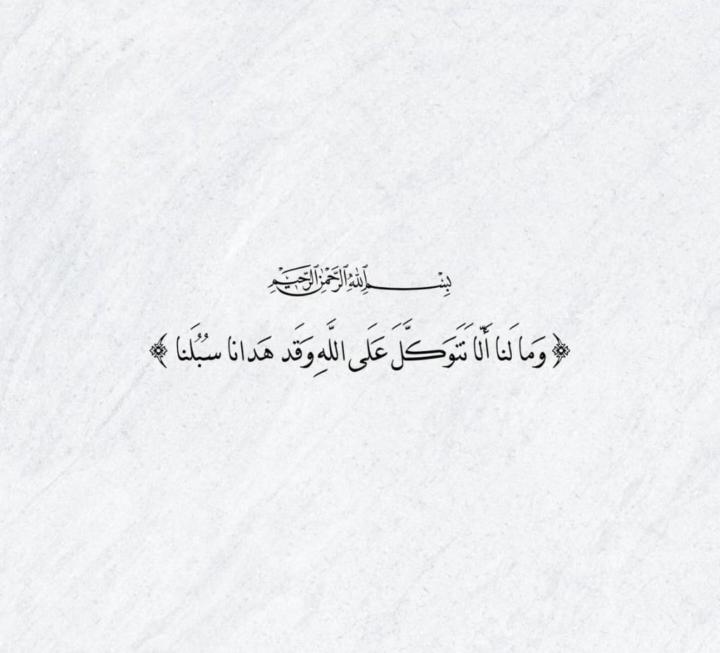 بِسْمِ ٱللَّهِ ٱلرَّحْمَٰنِ ٱلرَّحِيمِ
﴿ وَما لَنا أَلّا نَتَوَكَّلَ عَلَى اللَّهِ وَقَد هَدانا سُبُلَنا ﴾